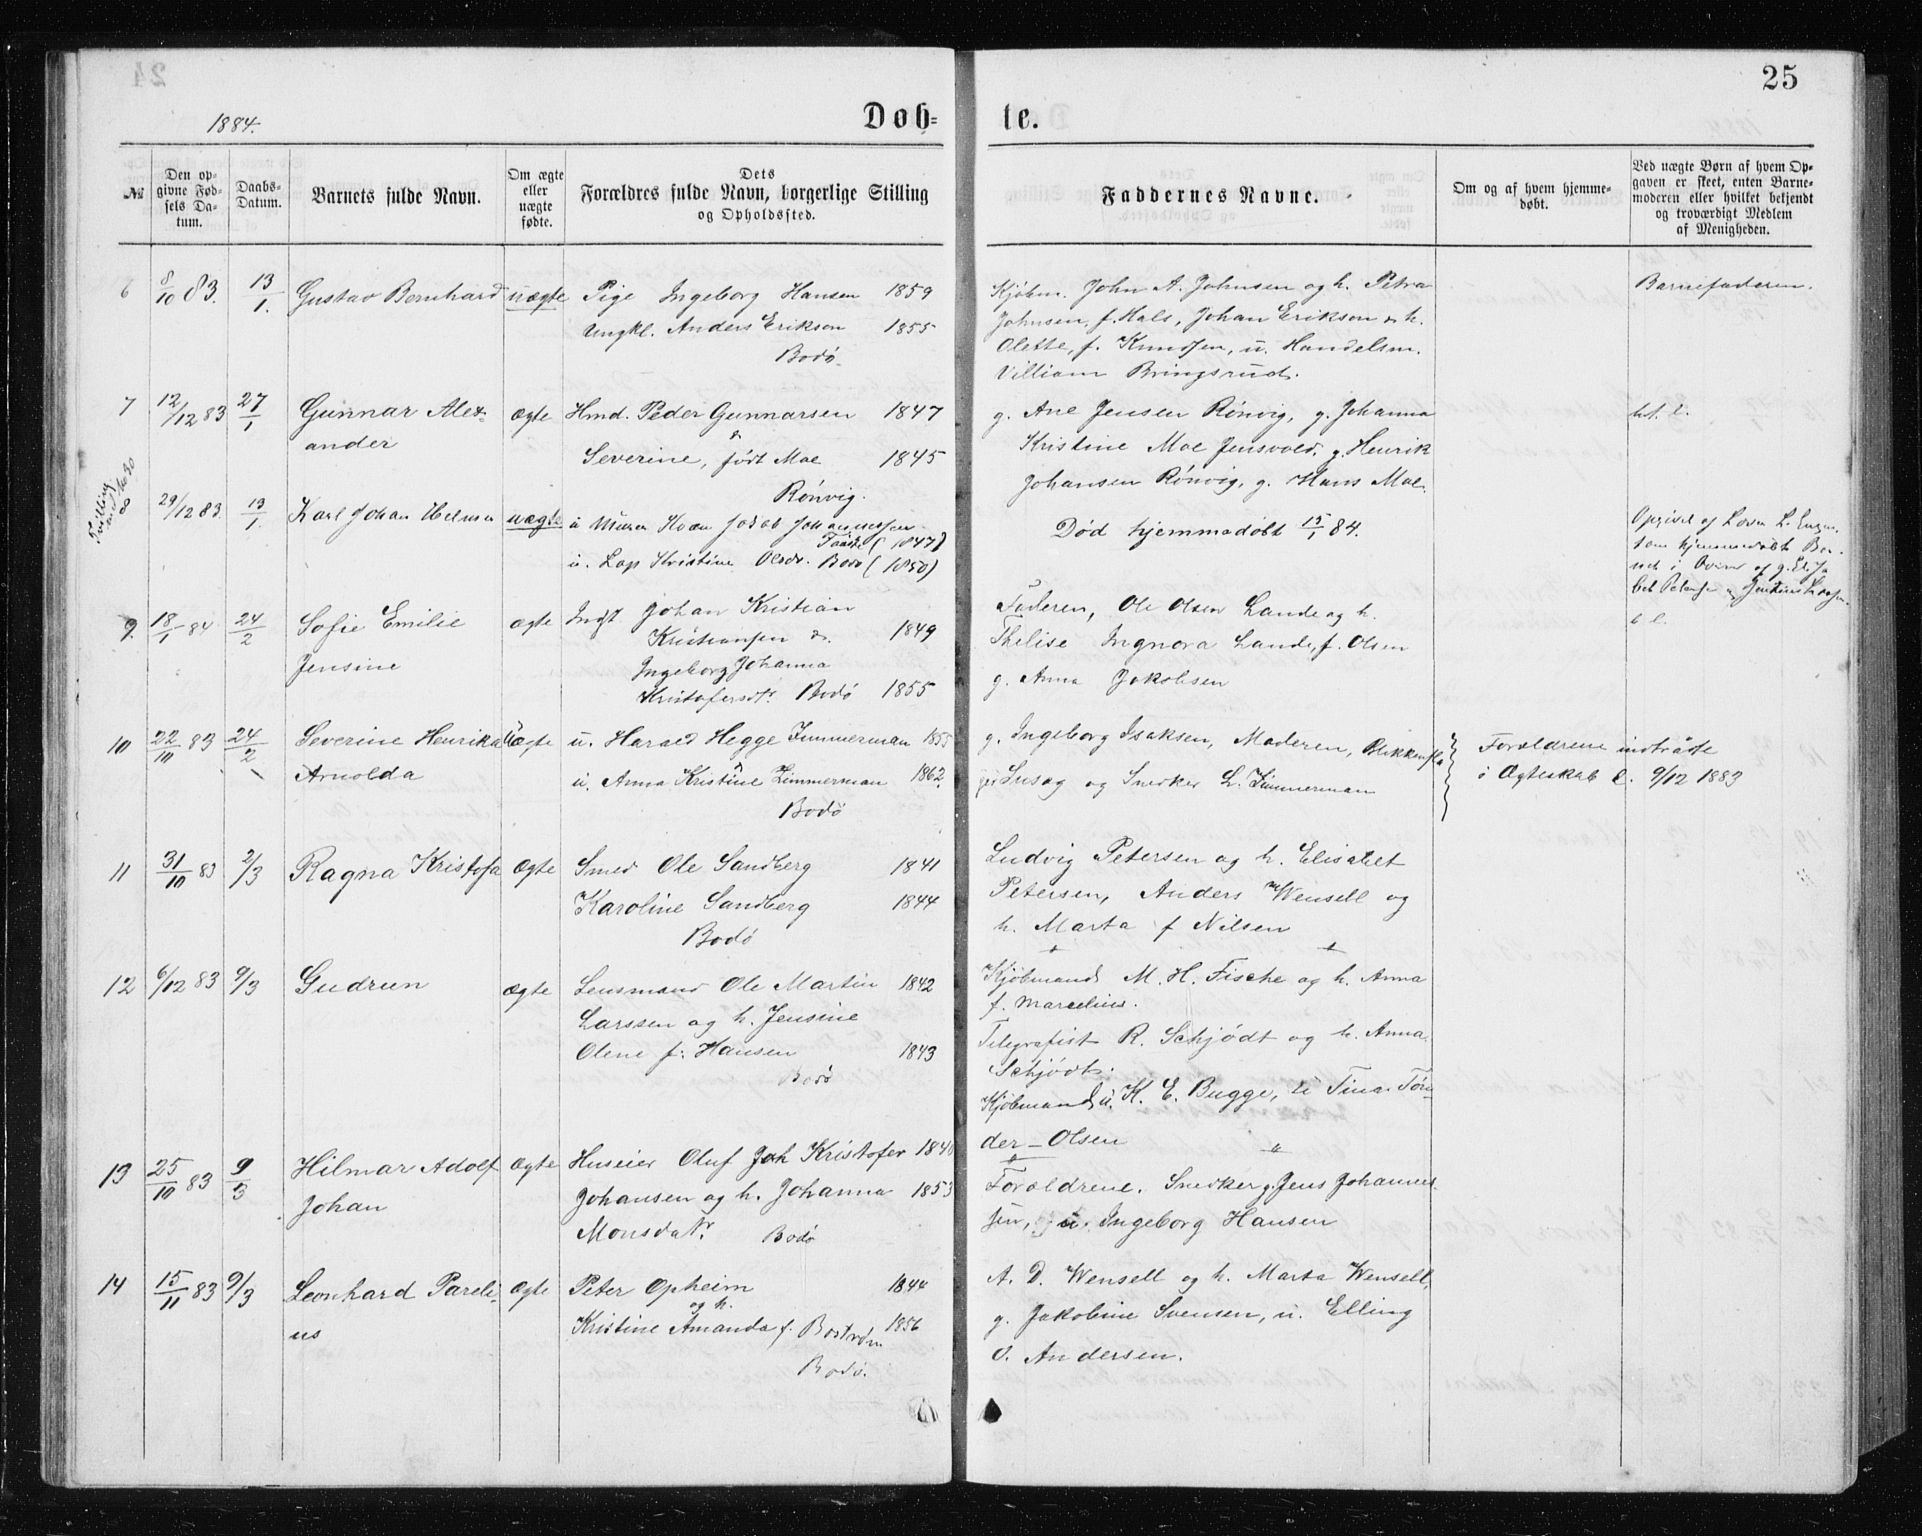 25
1884.
Døb=
te.
№
Den op-
givne Fød-
sels Da-
tum.
Daabs-
Datum.
Barnets fulde Navn.
Om ægte
eller
uægte
fødte.
Dets
Forældres fulde Navn, borgerlige Stilling
og Opholdssted.
Faddernes Navne.
Om og af hvem hjemme-
døbt.
Ved uægte Børn af hvem Op-
gaven er skeet, enten Barne-
moderen eller hvilket bekjendt
og troværdigt Medlem
af Menigheden.
6 8/10 83. 13/1. Gustav Bernhard uægte Pige Ingeborg Hansen 1859
Ungkl. Anders Erikson 1855
Bodø.
Kjøbm. John A. Johnsen og h. Petra
Johnsen, f. Hals, Johan Erikson & h.
Olette, f. Knudsen, u. Handelsm.
Villiam Bringsrud.
Barnefaderen.
7 12/12 83 27/1 Gunnar Alex- ægte Hmd. Peder Gunnarsen 1847
ander & Severine, født Moe 1845
Rönvig.
g. Ane Jensen Rönvig, g. Johanna
Kristine Moe Jensvold, g. Henrik
Johansen Rönvig, g. Hans Moe.
Tvilling
8 29/12 83. 13/1. Karl Johan Helmer uægte
u. Jakob Johannessen
(1847)
u. Lap Kristine Olsdr. Bodø (1850)
Død hjemmedøbt 15/1 84.
9. 18/1 84 24/2 Sofie Emilie ægte Indst Johan Kristian
Jensine
Kristiansen & 1849
Ingeborg Johanna
Kristofersdtr. Bodø 1855
Faderen, Ole Olsen Lande og h.
Thelise Ingnora Lande, f. Olsen
g. Anna Jakobsen
10 22/10 83 24/2 Severine Henrika Uægte u. Harald Hegge Zimmerman 1855
Arnolda u. Anna Kristine Zimmerman 1862.
Bodø
g. Ingeborg Isaksen, Moderen, Blikkensla
ger Susag og Snedker L. Zimmerman
Forældrene indtrådte
i Ægteskab d. 9/12 1883
11 31/10 83 2/3 Ragna Kristofa Ægte Smed Ole Sandberg 1841
Karoline Sandberg 1844
Bodø
Ludvig Petersen og h. Elisabet
Petersen, Anders Wensell og
h. Marta f Nilsen
12 6/12 83 9/3 Gudrun Ægte Lensmand Ole Martin 1842
Larssen og h. Jensine
Olene f. Hansen 1843
Bodø
Kjøbmand M. H. Fische og h. Anna
f. Marcelius.
Telegrafist R. Schjødt og h. Anna
Schjødt.
Kjøbmand u. K. E. Bugge, u Tina Tøn-
der - Olsen
13 25/10 83 9/3 Hilmar Adolf Ægte Huseier Oluf Joh Kristofer 1840
Johan Johansen og h. Johanna 1853
Monsdatr. Bodø
Forældrene. Snedker g. Jens Johannes-
sen, u. Ingeborg Hansen
14 15/11 83 9/3 Leonhard Pareli- Ægte Peter Opheim 1844
us og h.
Kristine Amanda f. Bostrøm 1856
Bodø.
A. D. Wensell og h. Marta Wensell,
g. Jakobine Svensen, u. Elling
O. Andersen.